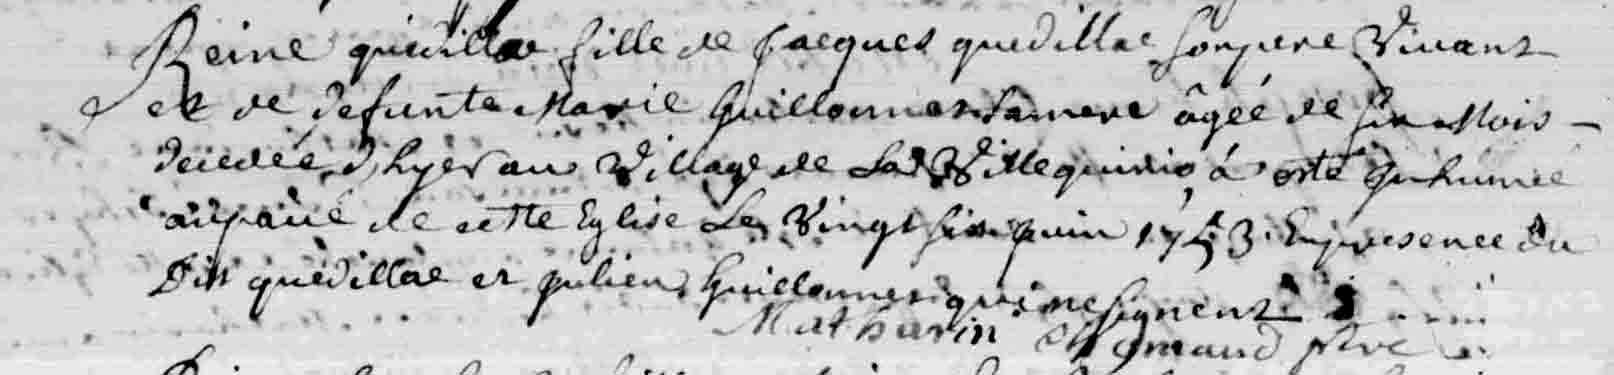 Reine quedillac fille de Jacques quedillac son pere Vivant
et de defunte Marie Guillonnet sa mere âgée de six Mois -
deiedée d'hyer au Village de La Villequinio à esté Inhumée
au pavé de cette Eglise Le Vingt six juin 1753. En presence du
Dit quedillac et julien Guillonnet qui ne signent
Mathurin pbre